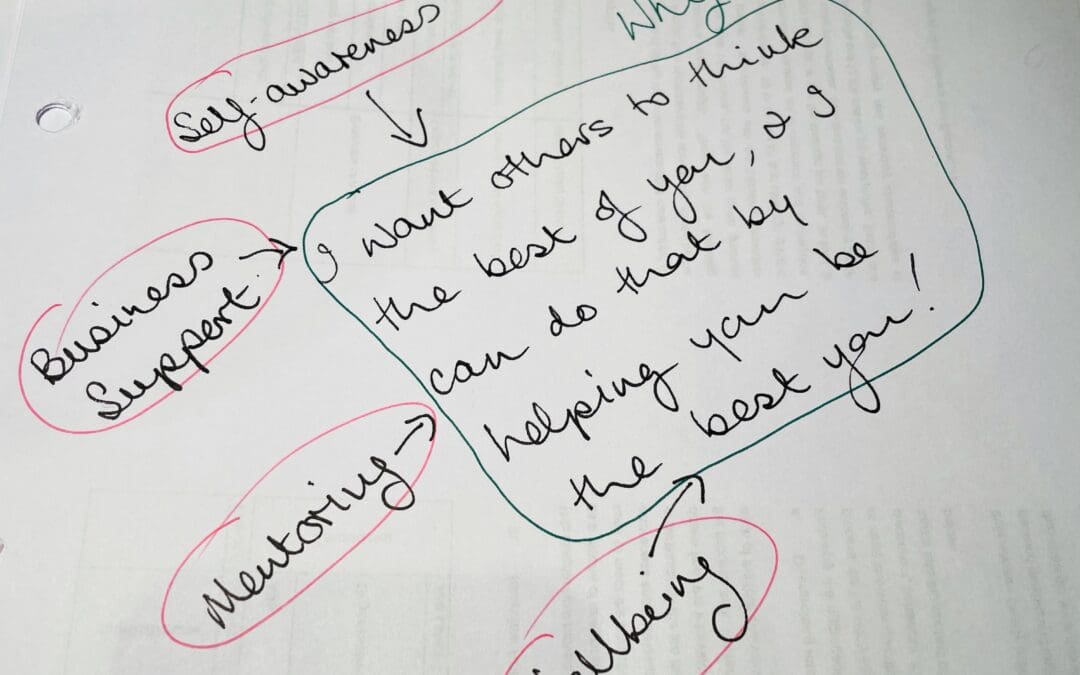 Why
Self-awareness
I want others to think
the best of you, & I
can do that by
helping you be
the best you!
Business
Support
Mentoring
ellbeing